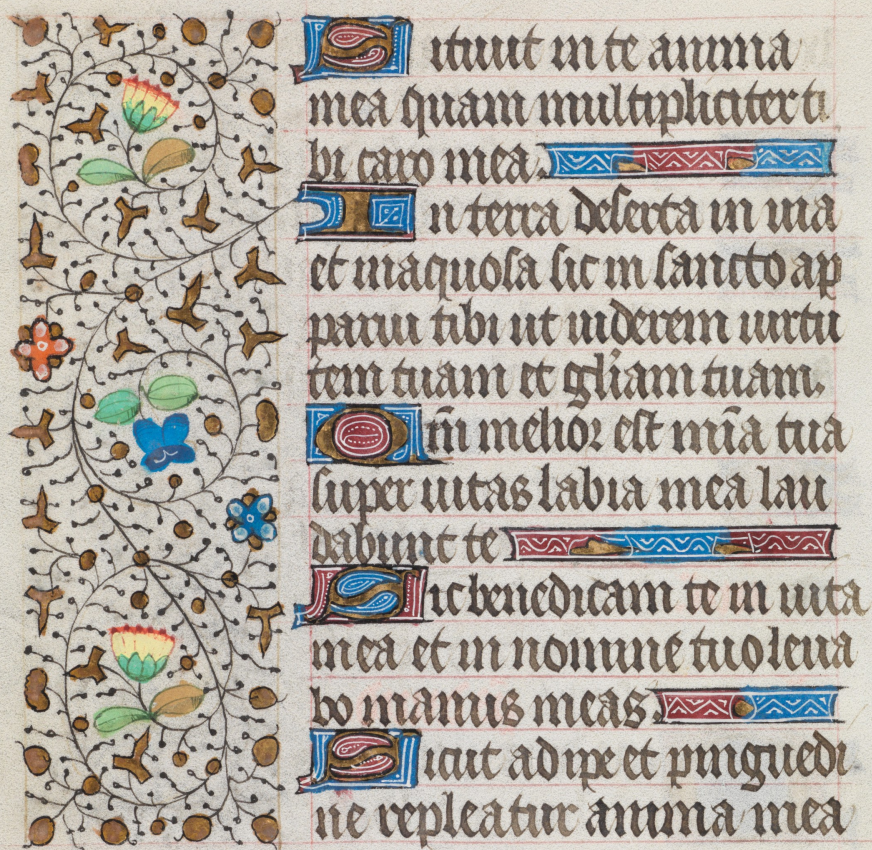 Situit in te anima
mea quam multipliciter ti
bi caro mea.
In terra deserta in uia
et inaquosa sic in sancto ap
parui tibi ut uiderem uirtu
tem tuam et gl̄iam tuam.
Qm̄ melior est mīa tua
super uitas labia mea lau
dabunt te
Sic benedicam te in uita
mea et in nomine tuo leua
bo manus meas.
Sicut adipe et pinguedi
ne repleatur anima mea